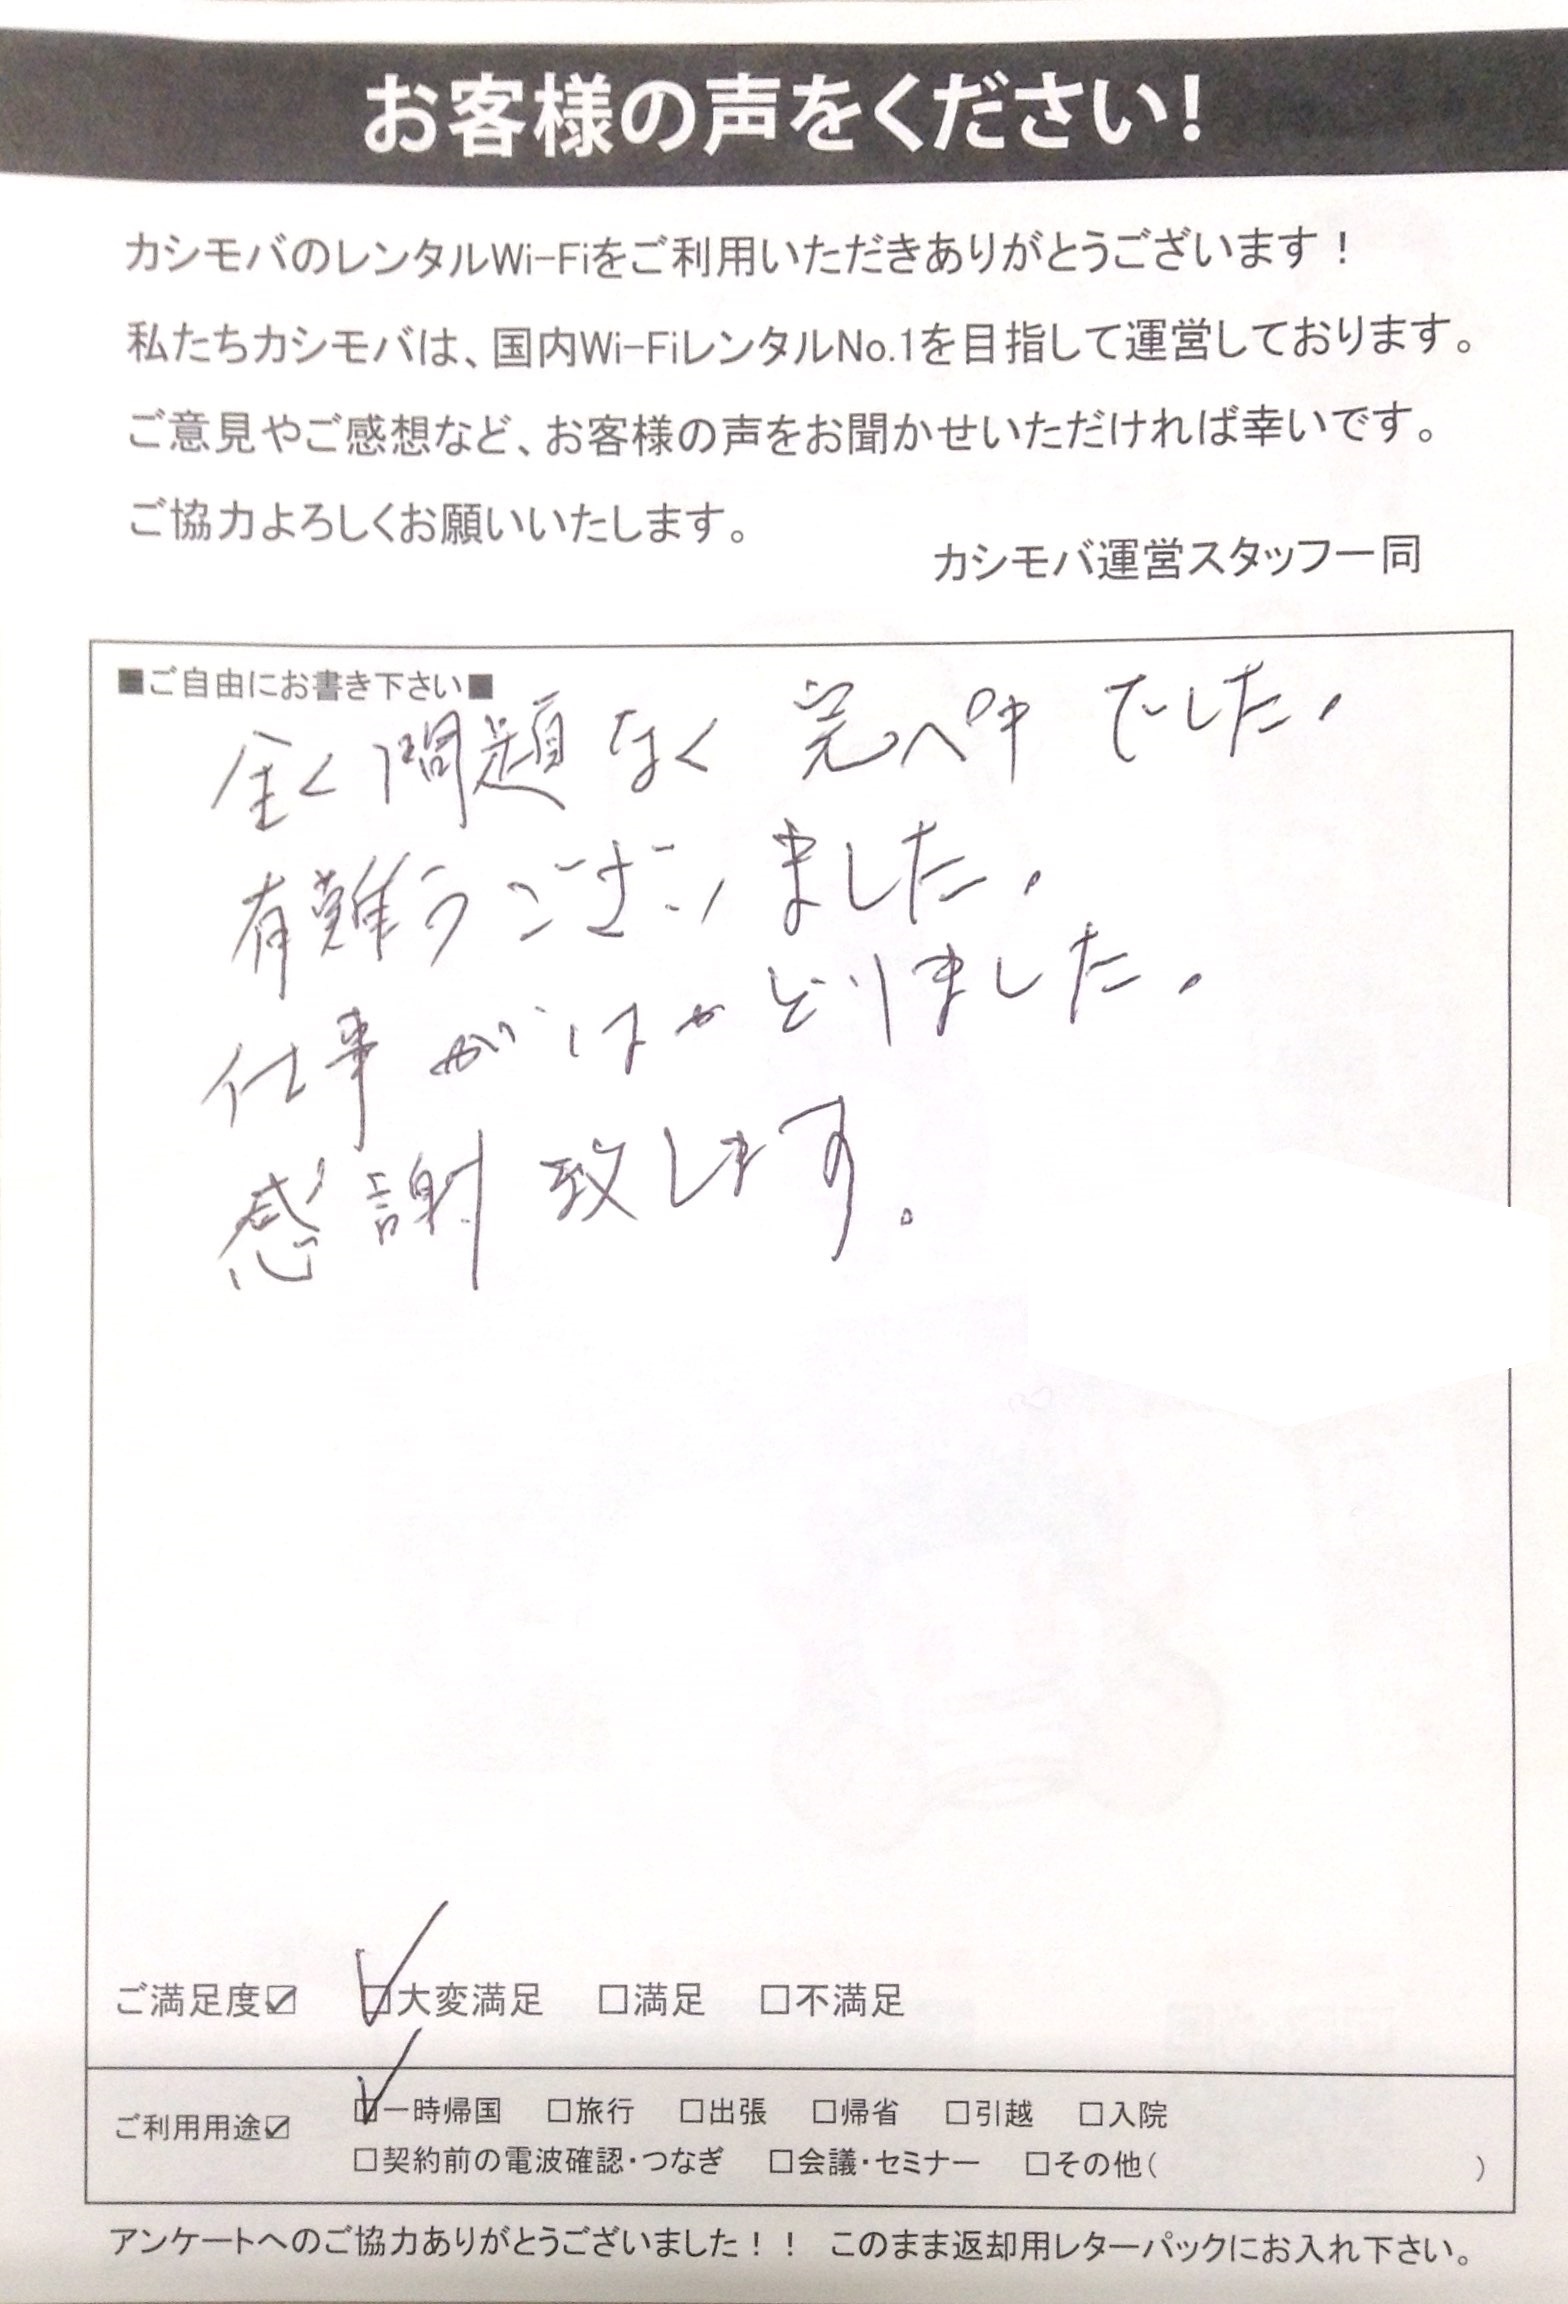 お客様の声をください!
カシモバのレンタルWi-Fiをご利用いただきありがとうございます！
私たちカシモバは、国内Wi-FiレンタルNo.1を目指して運営しております。
ご意見やご感想など、お客様の声をお聞かせいただければ幸いです。
ご協力よろしくお願いいたします。
カシモバ運営スタッフ一同
■ご自由にお書き下さい■
全く問題なく完ペキでした。
有難うございました。
仕事がはかどりました。
感謝致します。
ご満足度☑ ☑大変満足 □満足 □不満足
ご利用用途☑ ☑一時帰国 □旅行 □出張 □帰省 □引越 □入院
□契約前の電波確認・つなぎ □会議・セミナー □その他( )
アンケートへのご協力ありがとうございました！！ このまま返却用レターパックにお入れ下さい。